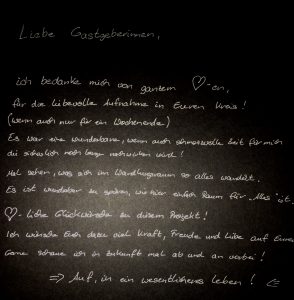 Liebe Gastgeberinnen,
ich bedanke mich von ganzem ♡-en,
für die liebevolle Aufnahme in Euren Kreis!
(wenn auch nur für ein Wochenende)
Es war eine wunderbare, wenn auch schmerzvolle Zeit für mich
die sicherlich noch lange nachwirken wird!
Mal sehen, was sich im Wandlungsraum so alles wandelt.
Es ist wunderbar zu spüren, wie hier einfach Raum für "Alles" ist.
♡-liche Glückwünsche zu diesem Projekt!
Ich wünsche Euch dazu viel Kraft, Freude und Liebe auf Eurem
Gerne schaue ich in Zukunft mal ab und an vorbei!
⇒ Auf, in ein wesentlicheres Leben!